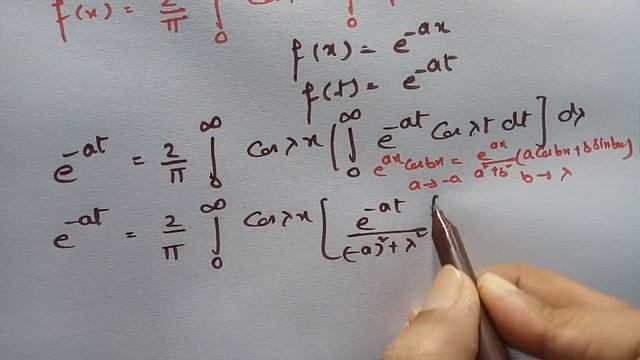 f(x) = 2/π ∫₀
f(x) = e^{-ax}
f(t) = e^{-at}
e^{-at} = 2/π ∫₀^∞ Cos λx [ ∫₀^∞ e^{-at} Cos λt dt ] dλ
e^{ax} cos bx = e^{ax}/(a²+b²) (a cos bx + b sin bx)
a → -a b → λ
e^{-at} = 2/π ∫₀^∞ Cos λx [ e^{-at}/((-a)²+λ²)